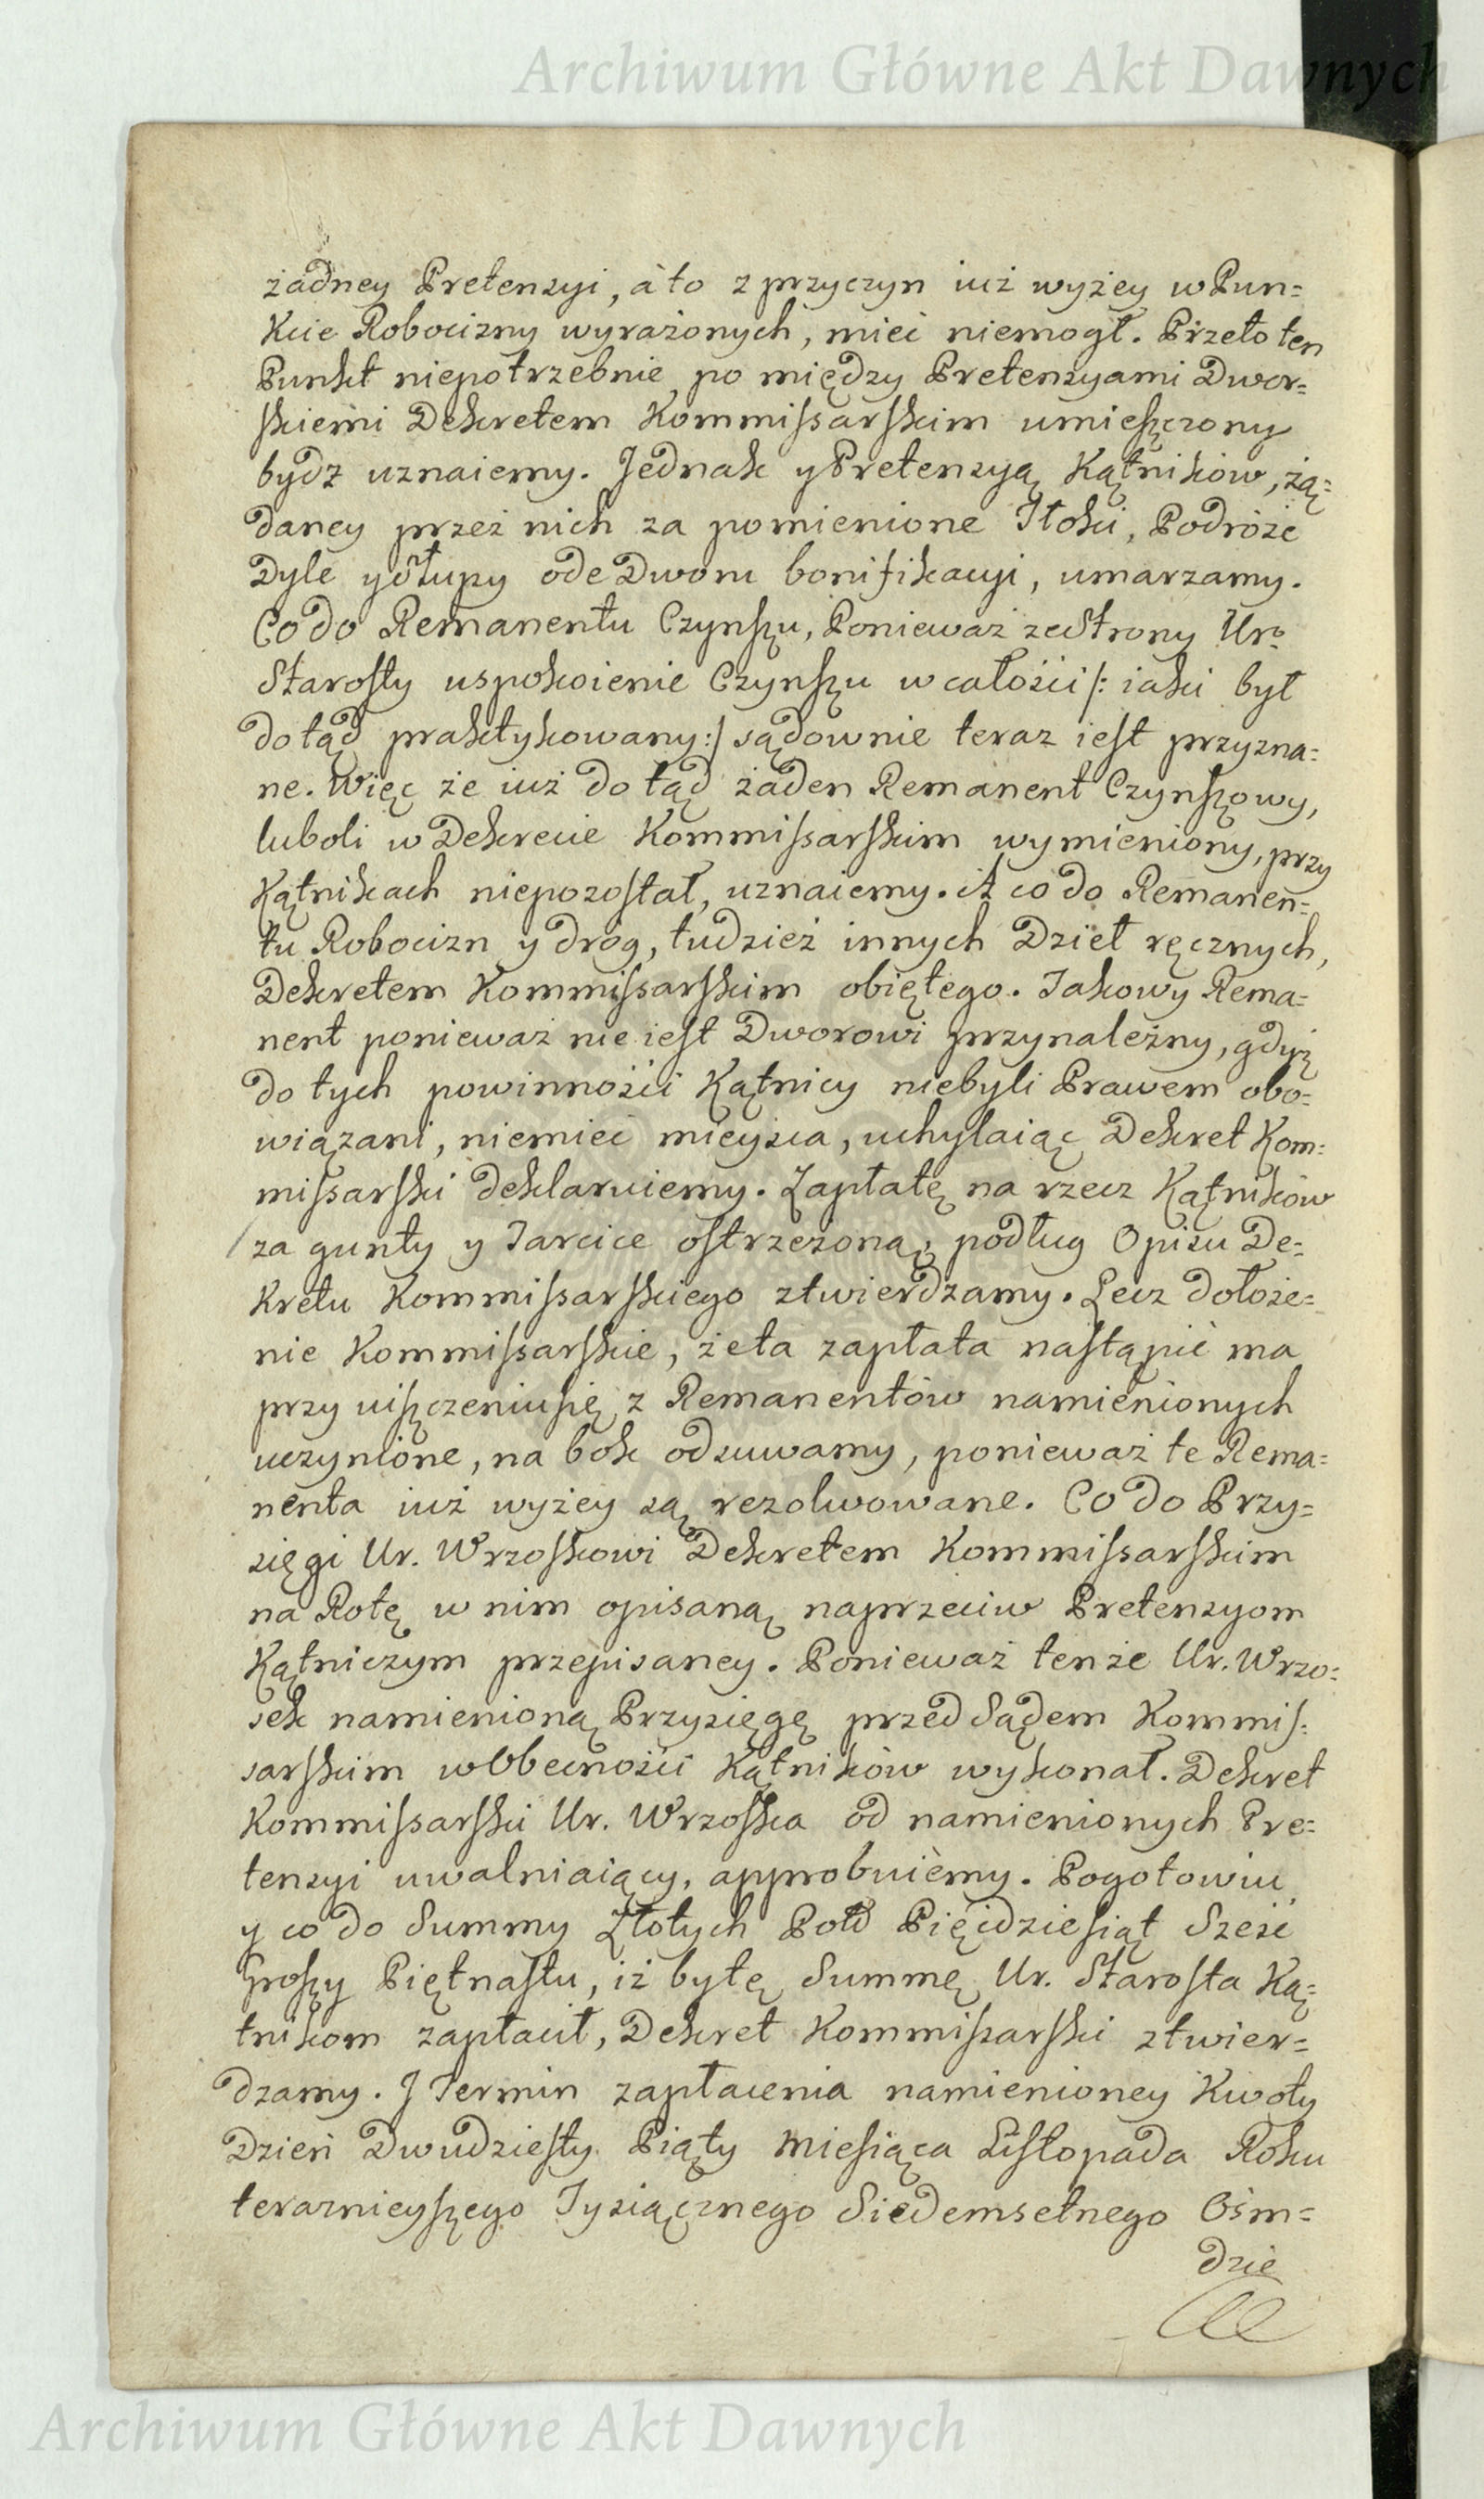 Archiwum Główne Akt Dawnych
żadney Pretensyi, à to z przyczyn iuż wyżey w Pun=
kcie Robocizny wyrażonych, mieć niemogł. Przeto ten
Punkt niepotrzebnie po między Pretensyami Dwor=
skiemi Dekretem Kommissarskim umieszczony
bydz uznaiemy. Jednak y Pretensyą Kątników, żą=
daney przez nich za pomienione Tłoki, Podróże
Dyle y Słupy ode Dworu bonifikacyi, umarzamy.
Co do Remanentu Czynszu, Ponieważ ze Strony Uro
Starosty uspokoienie Czynszu w całości /: iaki był
dotąd praktykowany :/ sądownie teraz iest przyzna=
ne. Więc że iuż do tąd żaden Remanent Czynszowy,
luboli w Dekrecie Kommissarskim wymieniony, przy
Kątnikach niepozostał, uznaiemy. A co do Remanen=
tu Robocizn y dróg, tudzież innych Dzieł ręcznych,
Dekretem Kommissarskim obiętego. Jakowy Rema=
nent ponieważ nie iest Dworowi przynależny, gdyż
do tych powinności Kątnicy niebyli Prawem obo=
wiązani, niemieć mieysca, uchylaiąc Dekret Kom=
missarski deklaruiemy. Zapłatę na rzecz Kątników
za gunty y Tarcice ostrzeżoną, podług Opisu De=
kretu Kommissarskiego ztwierdzamy. Lecz dołoże=
nie Kommissarskie, że ta zapłata nastąpić ma
przy uiszczeniu się z Remanentów namienionych
uczynione, na bok odsuwamy, ponieważ te Rema=
nenta iuż wyżey są rezolwowane. Co do Przy=
sięgi Ur. Wrzoskowi Dekretem Kommissarskim
na Rotę w nim opisaną naprzeciw Pretensyom
Kątniczym przepisaney. Ponieważ tenże Ur. Wrzo=
sek namienioną Przysięgę przed Sądem Kommis=
sarskim w Obecności Kątników wykonał. Dekret
Kommissarski Ur. Wrzoska od namienionych Pre=
tensyi uwalniaiący, approbuiemy. Pogotowiu
y co do Summy Złotych Pięćdziesiąt Sześć
Groszy Piętnastu, iż by tę Summę Ur. Starosta Ką=
tnikom zapłacił, Dekret Kommissarski ztwier=
dzamy. J Termin zapłacenia namienioney Kwoty
Dzień Dwudziesty Piąty Miesiąca Listopada Roku
teraznieyszego Tysiącznego Siedemsetnego Ośm=
dzie
Archiwum Główne Akt Dawnych